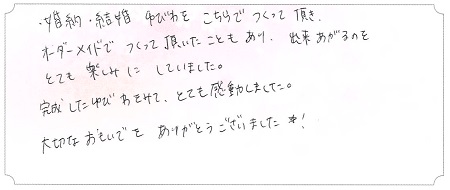 ・婚約・結婚 ゆびわを こちらで つくって頂き、
オーダーメイドで つくって 頂いたこともあり、 出来あがるのを
とても 楽しみに していました。
完成したゆびわをみて、とても感動しました。
大切なおもいでを ありがとうございました*!